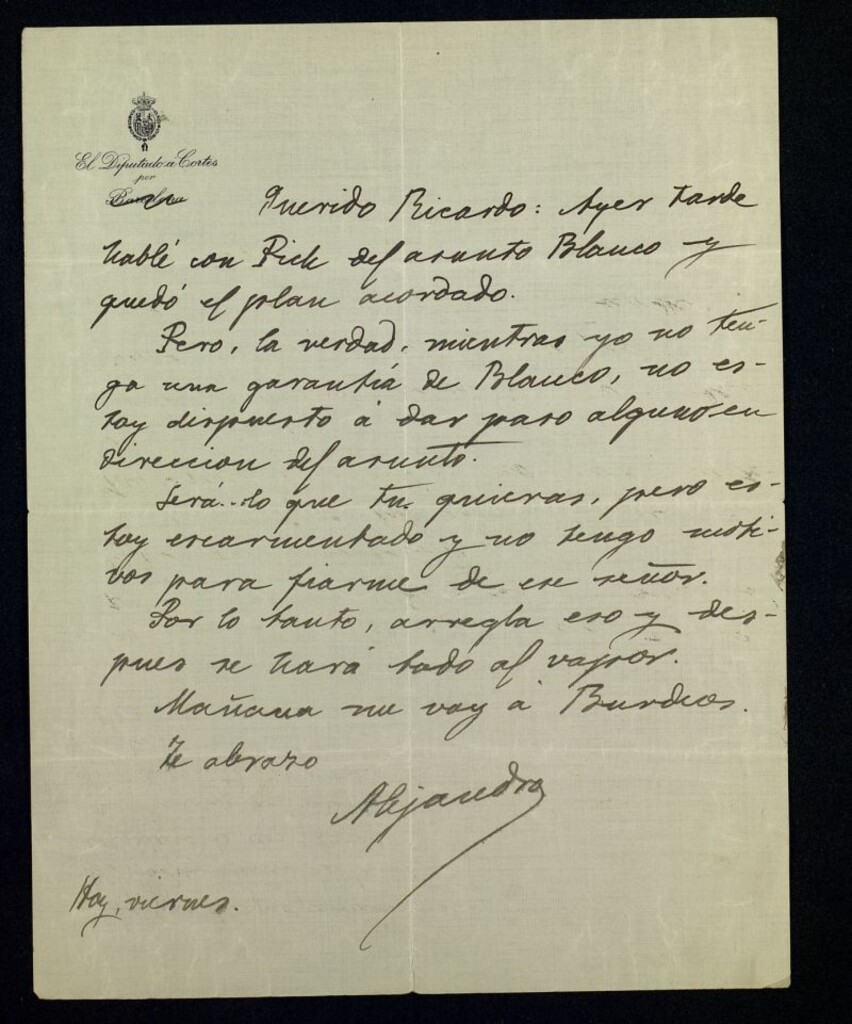 El Diputado a Cortes
por
Barcelona
Querido Ricardo: Ayer tarde
hablé con Pich del asunto Blanco y
quedó el plan acordado.
Pero, la verdad, mientras yo no ten-
ga una garantiá de Blanco, no es-
toy dispuesto á dar paso alguno en
direccion del asunto.
Será lo que tu quieras, pero es-
toy escarmentado y no tengo moti-
vos para fiarme de ese señor.
Por lo tanto, arregla eso y des-
pues se hará todo al vapor.
Mañana me voy á Burdeos.
Te abrazo
Alejandro
Hoy, viernes.